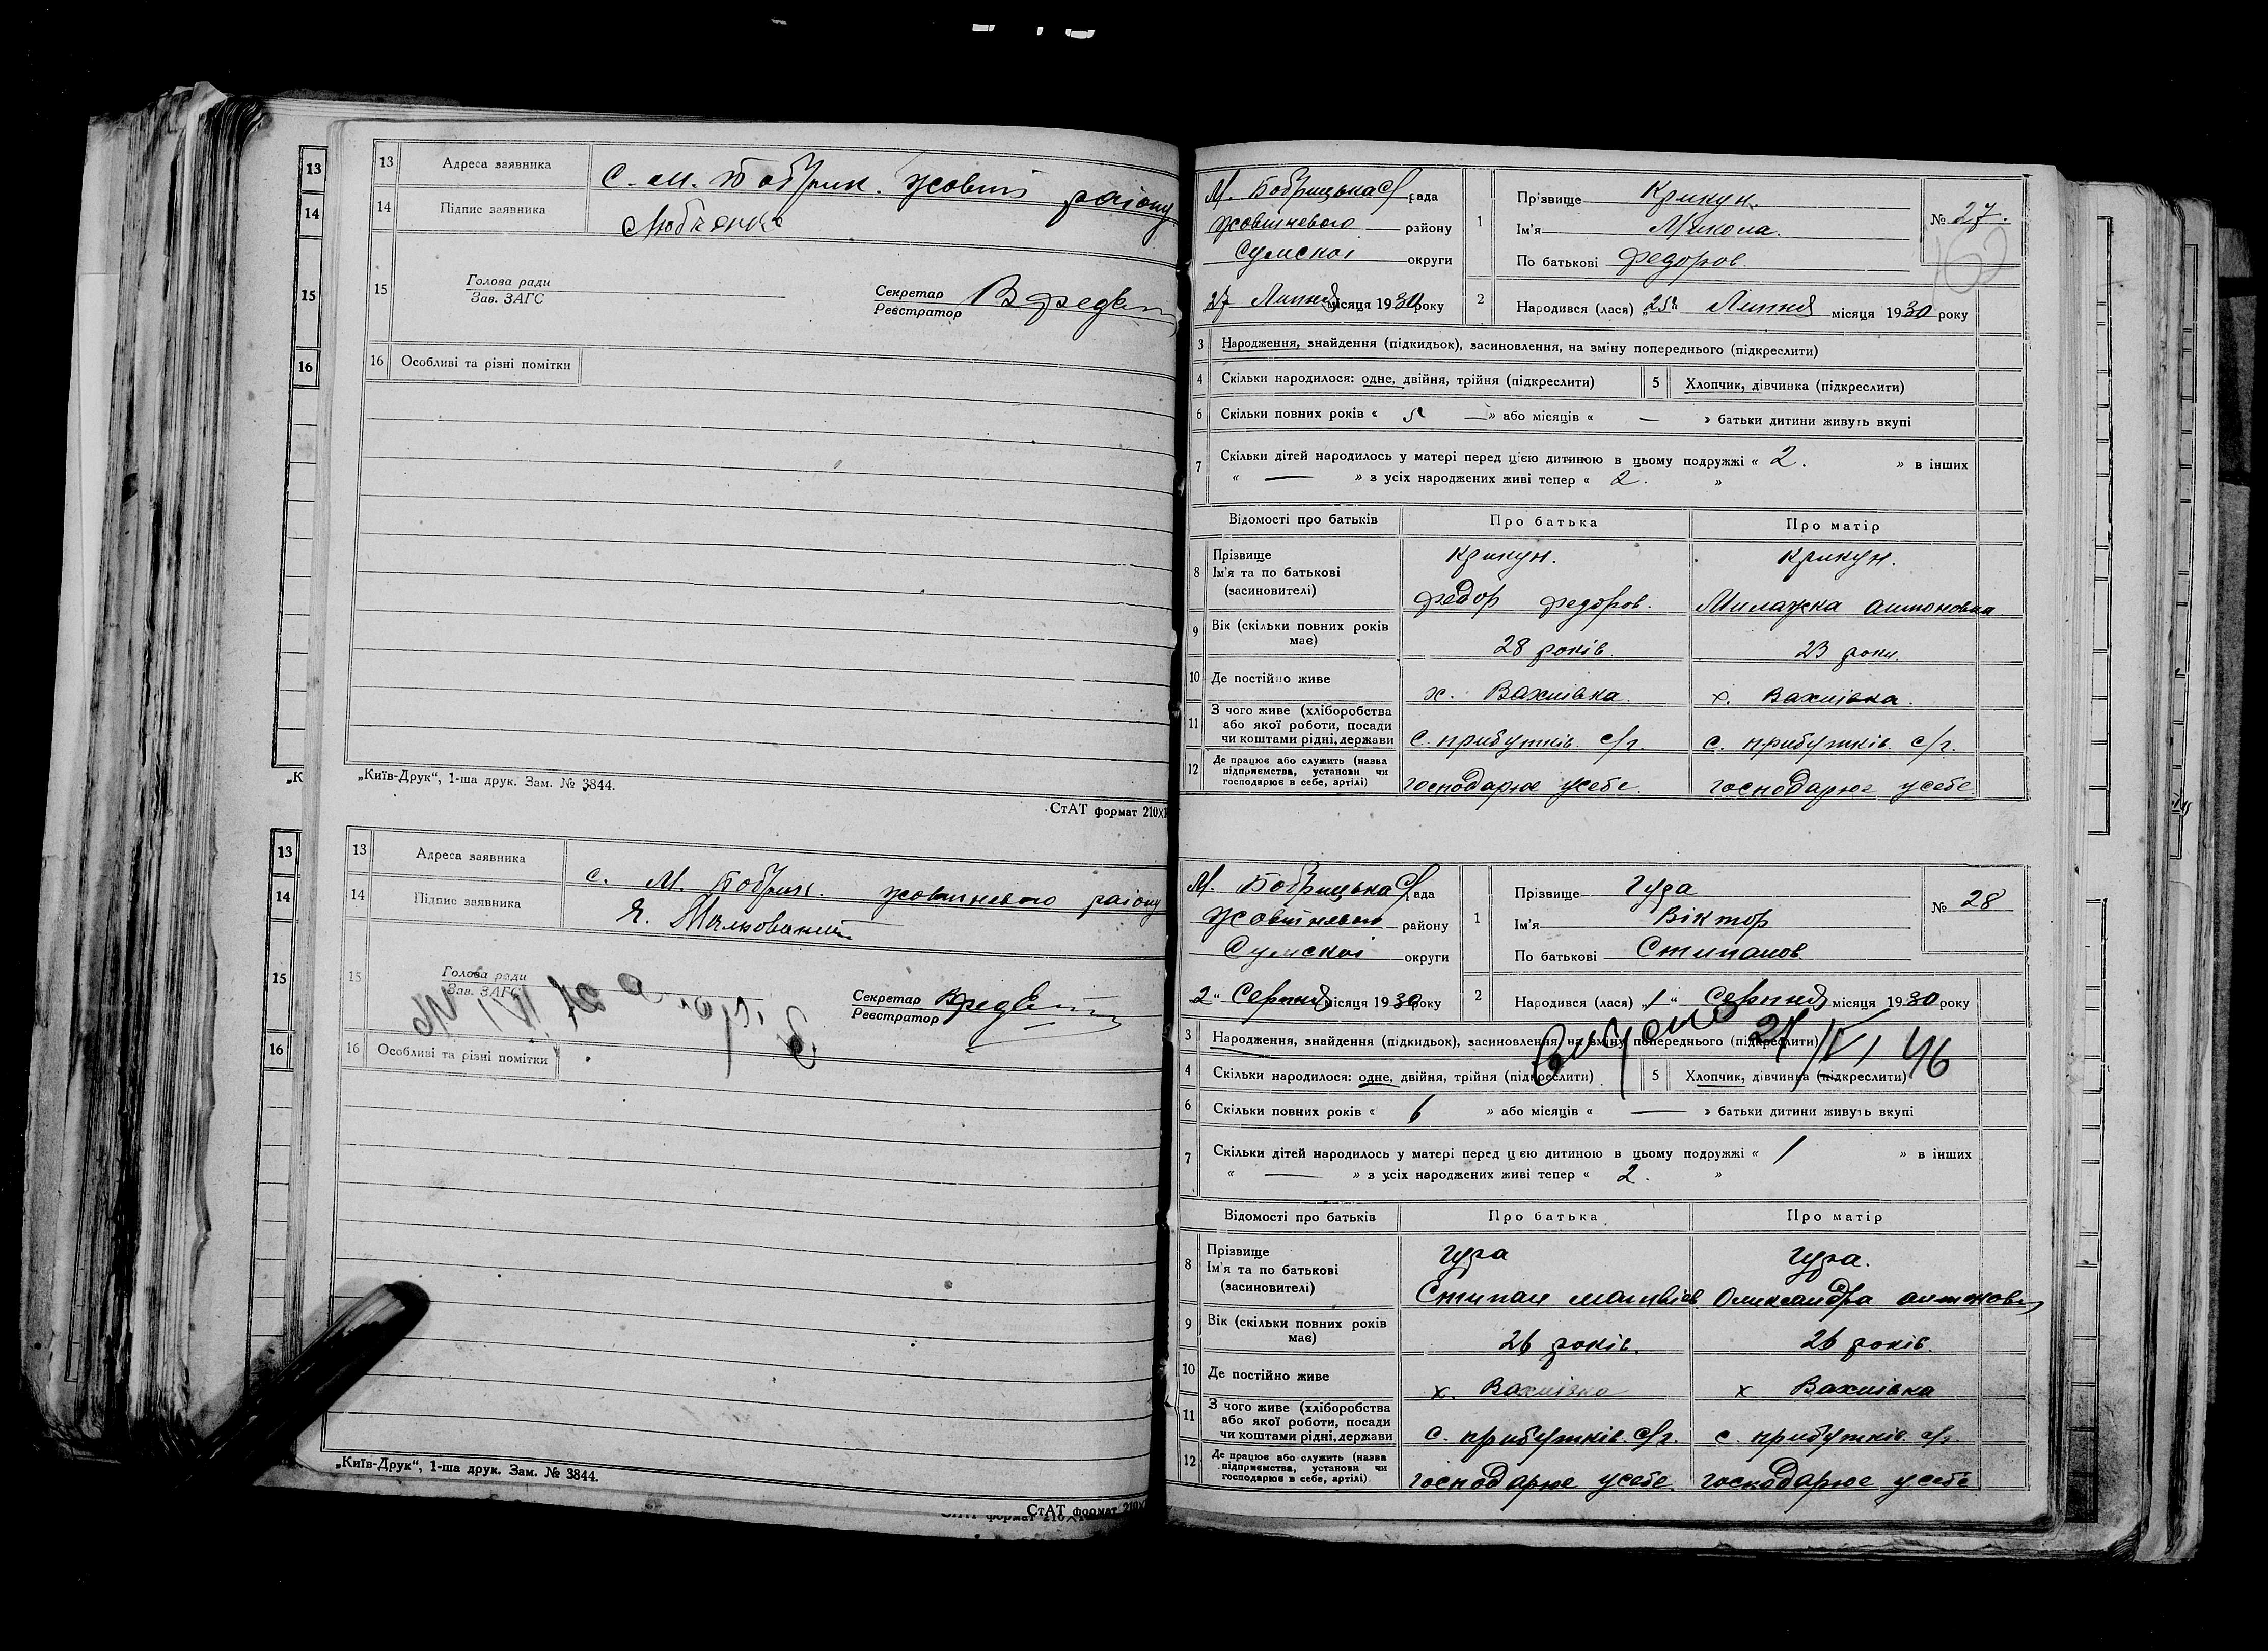 13
14
15
16
13 Адреса заявника С. М. Бобрик. Жовтн району
14 Підпис заявника Любченко
15 Голова ради
Зав. ЗАГС
Секретар
Реєстратор
16 Особливі та різні помітки
„Київ-Друк“, 1-ша друк. Зам. № 3844.
СтАТ формат 210×
„К
13
14
15
16
13 Адреса заявника с. М. Бобрик. Жовтневого району
14 Підпис заявника Я.
15 Голова ради
Зав. ЗАГС
Секретар
Реєстратор
16 Особливі та різні помітки
„Київ-Друк“, 1-ша друк. Зам. № 3844.
СтАТ формат 210×
М. Бобрицька С/рада
Жовтневого району
Сумскоі округи
27 Липня місяця 1930 року
1 Прізвище Крикун.
Ім'я Микола.
По батькові Федоров.
№ 27.
162
2 Народився (лася) „25“ Липня місяця 1930 року
3 Народження, знайдення (підкидьок), засиновлення, на зміну попереднього (підкреслити)
4 Скільки народилося: одне, двійня, трійня (підкреслити) 5 Хлопчик, дівчинка (підкреслити)
6 Скільки повних років « 5 —» або місяців « — » батьки дитини живуть вкупі
7 Скільки дітей народилось у матері перед цією дитиною в цьому подружжі « 2. » в інших
« — » з усіх народжених живі тепер « 2. »
Відомості про батьків Про батька Про матір
8 Прізвище Крикун. Крикун.
Ім'я та по батькові
(засновителі) Федор Федоров. Милажка Антоновна
9 Вік (скільки повних років має) 28 років. 23 роки.
10 Де постійно живе х. Вахнівка. х. Вахнівка.
11 З чого живе (хліборобства
або якої роботи, посади
чи коштами рідні, держави С. прибутків с/г. с. прибутків с/г.
12 Де працює або служить (назва
підприємства, установи чи
господарює в себе, артілі) господарює усебе. господарює усебе.
М. Бобрицька С/рада
Жовтневого району
Сумскоі округи
2“ Серпня місяця 1930 року
1 Прізвище Гура
Ім'я Віктор
По батькові Стипанов
№ 28
2 Народився (лася) „1“ Серпня місяця 1930 року
3 Народження, знайдення (підкидьок), засиновлення, на зміну попереднього (підкреслити)
4 Скільки народилося: одне, двійня, трійня (підкреслити) 5 Хлопчик, дівчинка (підкреслити)
6 Скільки повних років « 6 » або місяців « — » батьки дитини живуть вкупі
7 Скільки дітей народилось у матері перед цією дитиною в цьому подружжі « 1 » в інших
« — » з усіх народжених живі тепер « 2. »
Відомості про батьків Про батька Про матір
8 Прізвище Гура Гура.
Ім'я та по батькові
(засиновителі) Стипан Матвієв Олександра Антонов
9 Вік (скільки повних років має) 26 років. 26 років.
10 Де постійно живе х. Вахнівка х Вахнівка
11 З чого живе (хліборобства
або якої роботи, посади
чи коштами рідні, держави с. прибутків с/г. с. прибутків с/г.
12 Де працює або служить (назва
підприємства, установи чи
господарює в себе, артілі) господарює усебе. господарює усебе